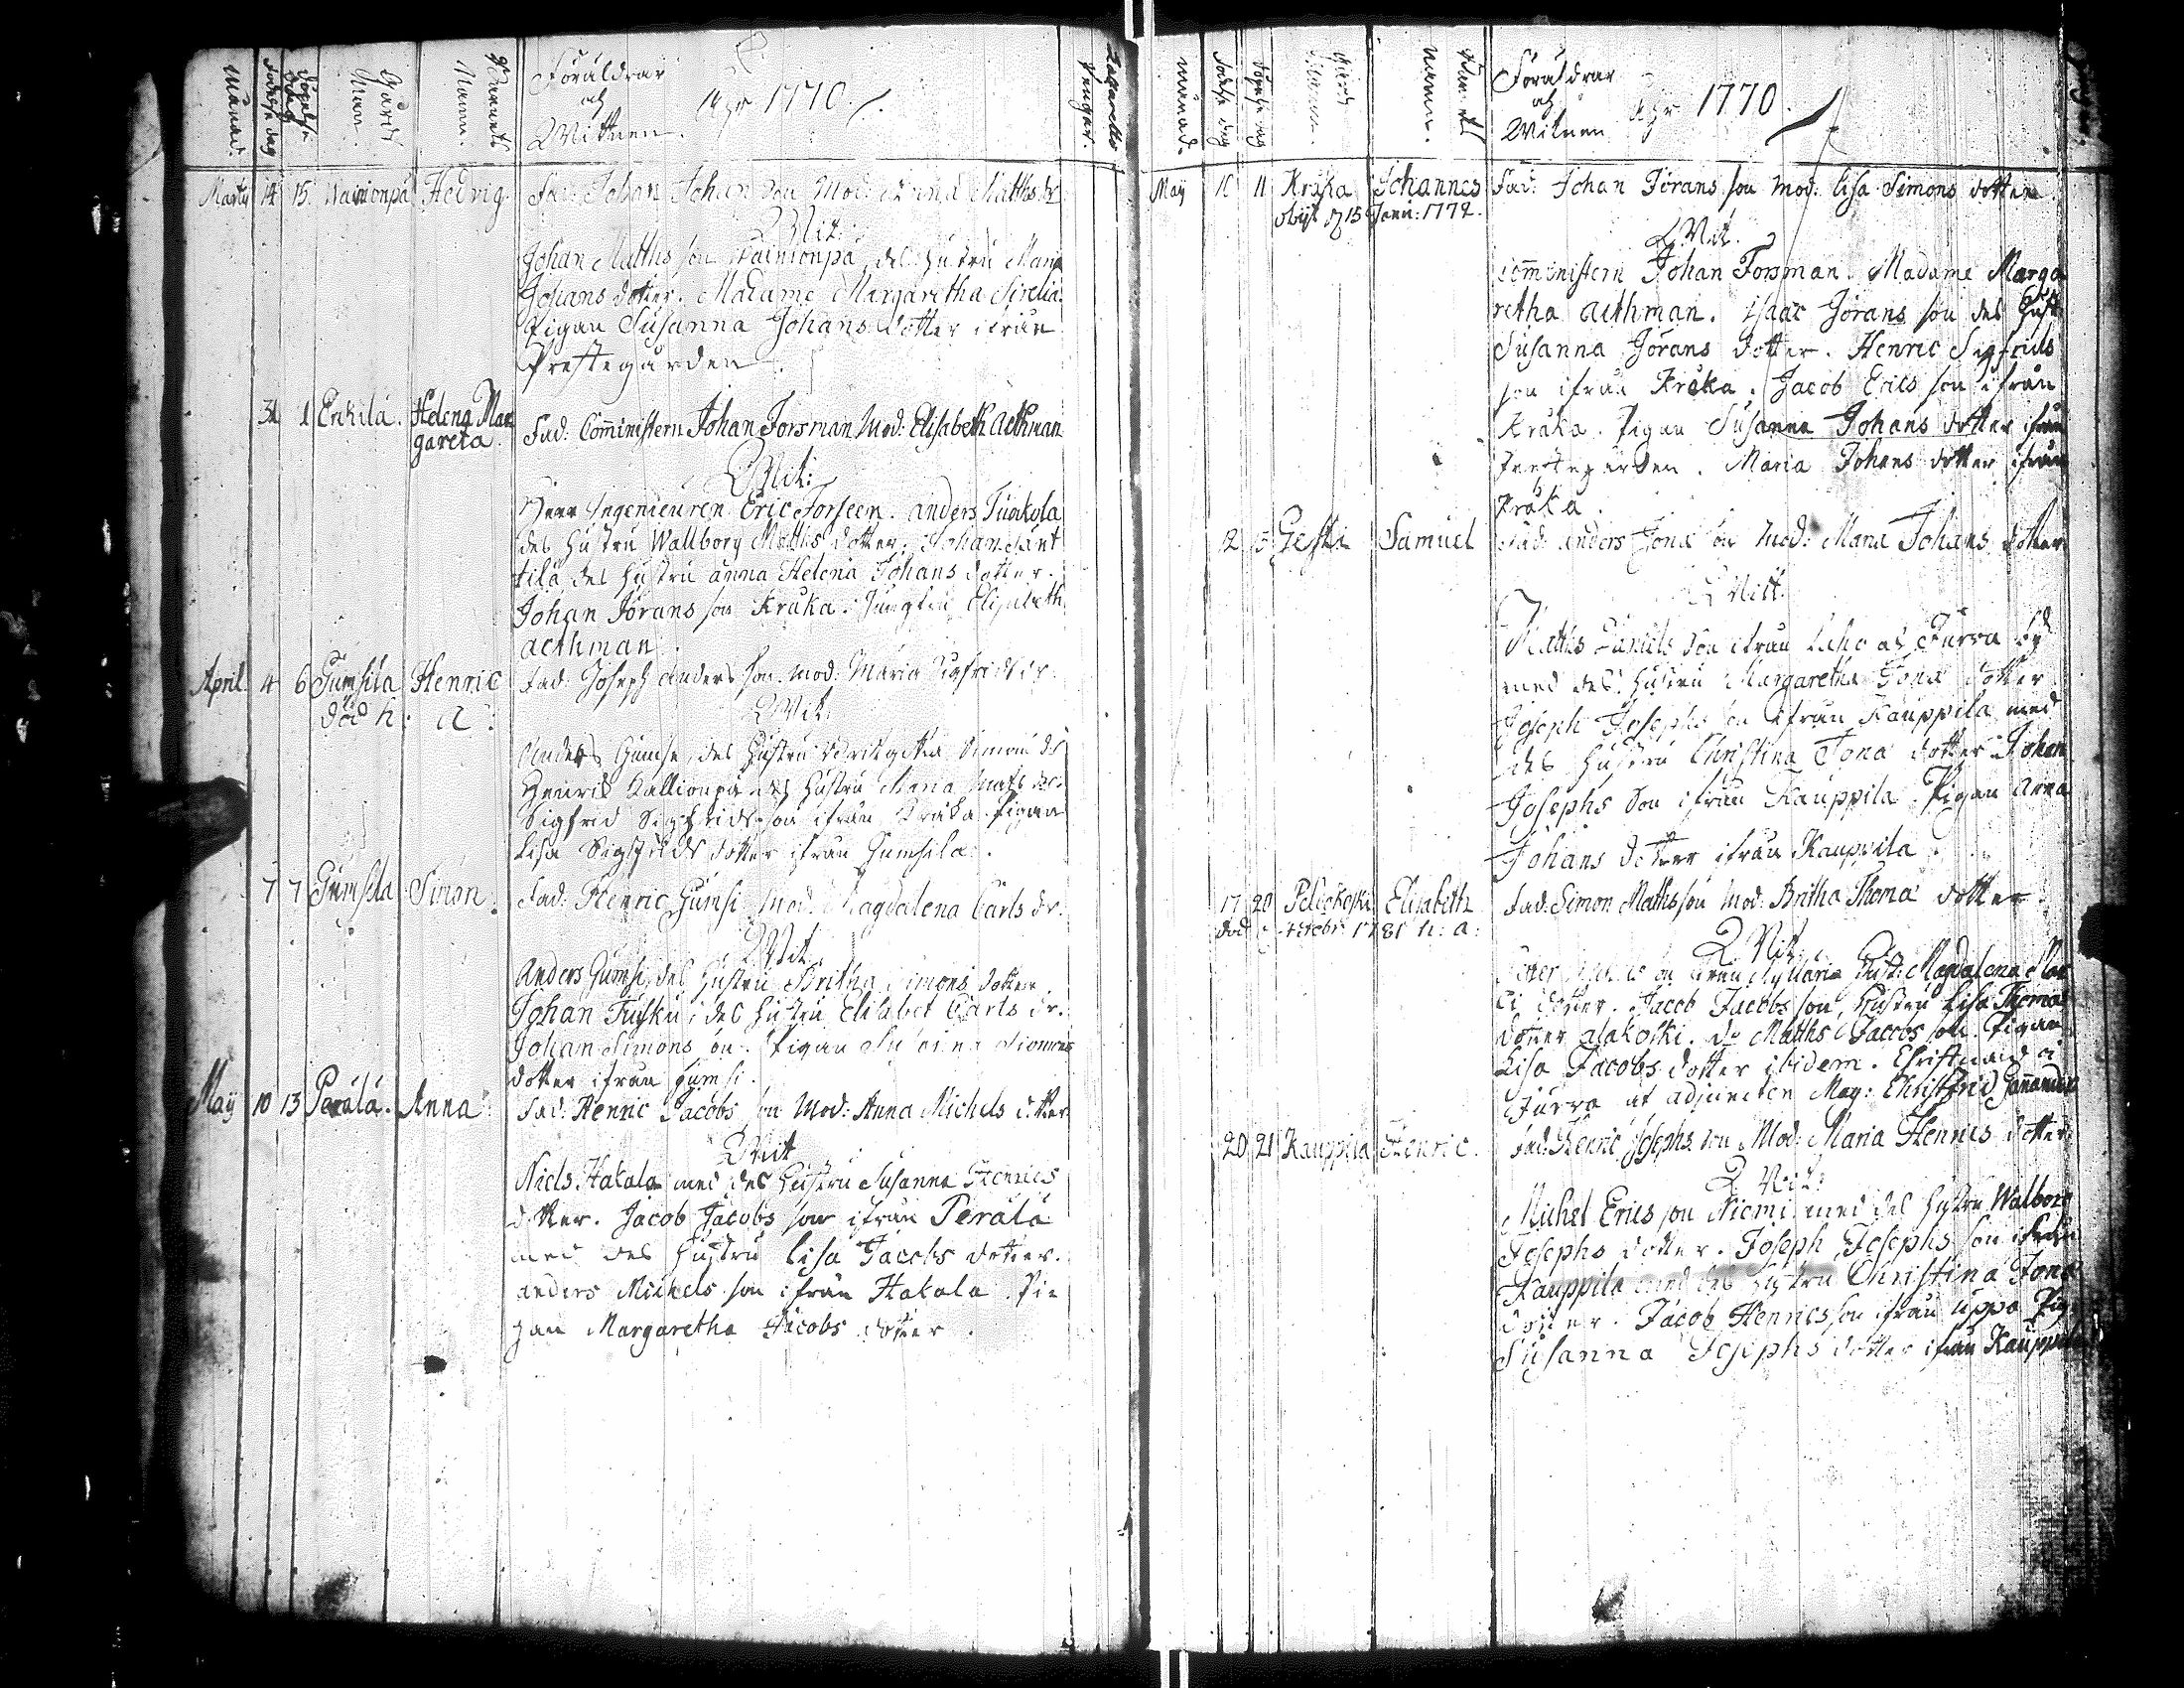 Månad. Födelse dag Döpelse dag Gårds Namn. Barnets Namn. Föräldrar och Wittnen. Åhr 1770. Lazaretts Pengar.
Marty 14 15. Wainionpä Hedvig. Fad: Johan Johan son Mod: Anna Matths dr
Wit:
Johan Matths son Wainionpä, des hustru Maria
Johans dotter. Madame Margaretha Sirelia
Pigan Susanna Johans dotter ifrån
Prestegården.
31 1 Erkilä. Helena Mar
gareta. Fad: Comministern Johan Forsman Mod: Elisabeth Aethman
Wit:
Herr Ingenieuren Eric Forseen. Anders Tuokola
des hustru Wallborg Matths dotter. Johan Sant
tila des hustru Anna Helena Johans dotter.
Johan Jörans son Kråka. Jungfru Elisabeth
Aethman.
April 4 6 Gumsila Henric Fad: Joseph Anders son. Mod: Maria Sigfrids dr.
död h. a. Wit:
Anders Gumse, des hustru Britgitta Simons dr
Henrik Kallionpä des hustru Maria Mats dr.
Sigfrid Sigfrids son ifrån Kråka. Pigan
Lisa Sigfrids dotter ifrån Gumsila.
7 7 Gumsila Simon. Fad: Henric Gumsi Mod: Magdalena Carls dr.
Wit.
Anders Gumsi, des hustru Britha Simons dotter.
Johan Tuisku, des hustru Elisabet Carls dr.
Johan Simons son. Pigan Susanna Simons
dotter ifrån Gumsi.
May 10 13 Perälä. Anna Fad: Henric Jacobs son Mod: Anna Michels dotter
Wit
Niels Hakala med des hustru Susanna Henrics
dotter. Jacob Jacobs son ifrån Perälä
med des hustru Lisa Jacobs dotter.
Anders Michels son ifrån Hakala. Pi=
gan Margaretha Jacobs dotter.
Månad. Födelse dag Döpelse dag Gårds Namn. Barnets Namn. Föräldrar och Witnen Åhr 1770.
May 10 11 Kråka Johannes Fad: Johan Jörans son Mod: Lisa Simons dotter
obijt d 15 Janu: 1772.
Wit.
Comministern Johan Forsman. Madame Marga
retha Aethman. Isaac Jörans son des hust:
Susanna Jörans dotter. Henric Sigfrids
son ifrån Kråka. Jacob Erics son ifrån
Kråka. Pigan Susanna Johans dotter ifrån
Prestegården. Maria Johans dotter ifrån
Kråka.
12 13 Gesti Samuel Fad: Anders Jona son Mod: Maria Johans dotter
Witt.
Matths Daniels son ifrån Laho af Jurva by
med des hustru Margaretha Jona dotter
Joseph Josephs son ifrån Kauppila med
des hustru Christina Jona dotter Johan
Josephs Son ifrån Kauppila. Pigan Anna
Johans dotter ifrån Kauppila.
17 20 Peldokoski Elisabeth Fad: Simon Maths son Mod: Britha Thoma dotter
död Octobr 1781 h: a:
Wit.
son hust: Magdalena Mar
ci dotter. Jacob Jacobs son, hustru Lisa Thoma
dotter Alakoski. do Matths Jacobs son. Pigan
Lisa Jacobs dotter ibidem. Christnad i
Jurva af adjuncten Mag: Christfrid Gananders
20 21 Kauppila Henric. Fad: Henric Josephs son Mod: Maria Henrics dotter
Wit:
Michel Erics son Niemi med des hustru Walborg
Josephs dotter. Joseph Josephs son ifrån
Kauppila med des hustru Christina Jona
dotter. Jacob Henrics son ifrån Uppa Pig:
Susanna Josephs dotter ifrån Kauppila